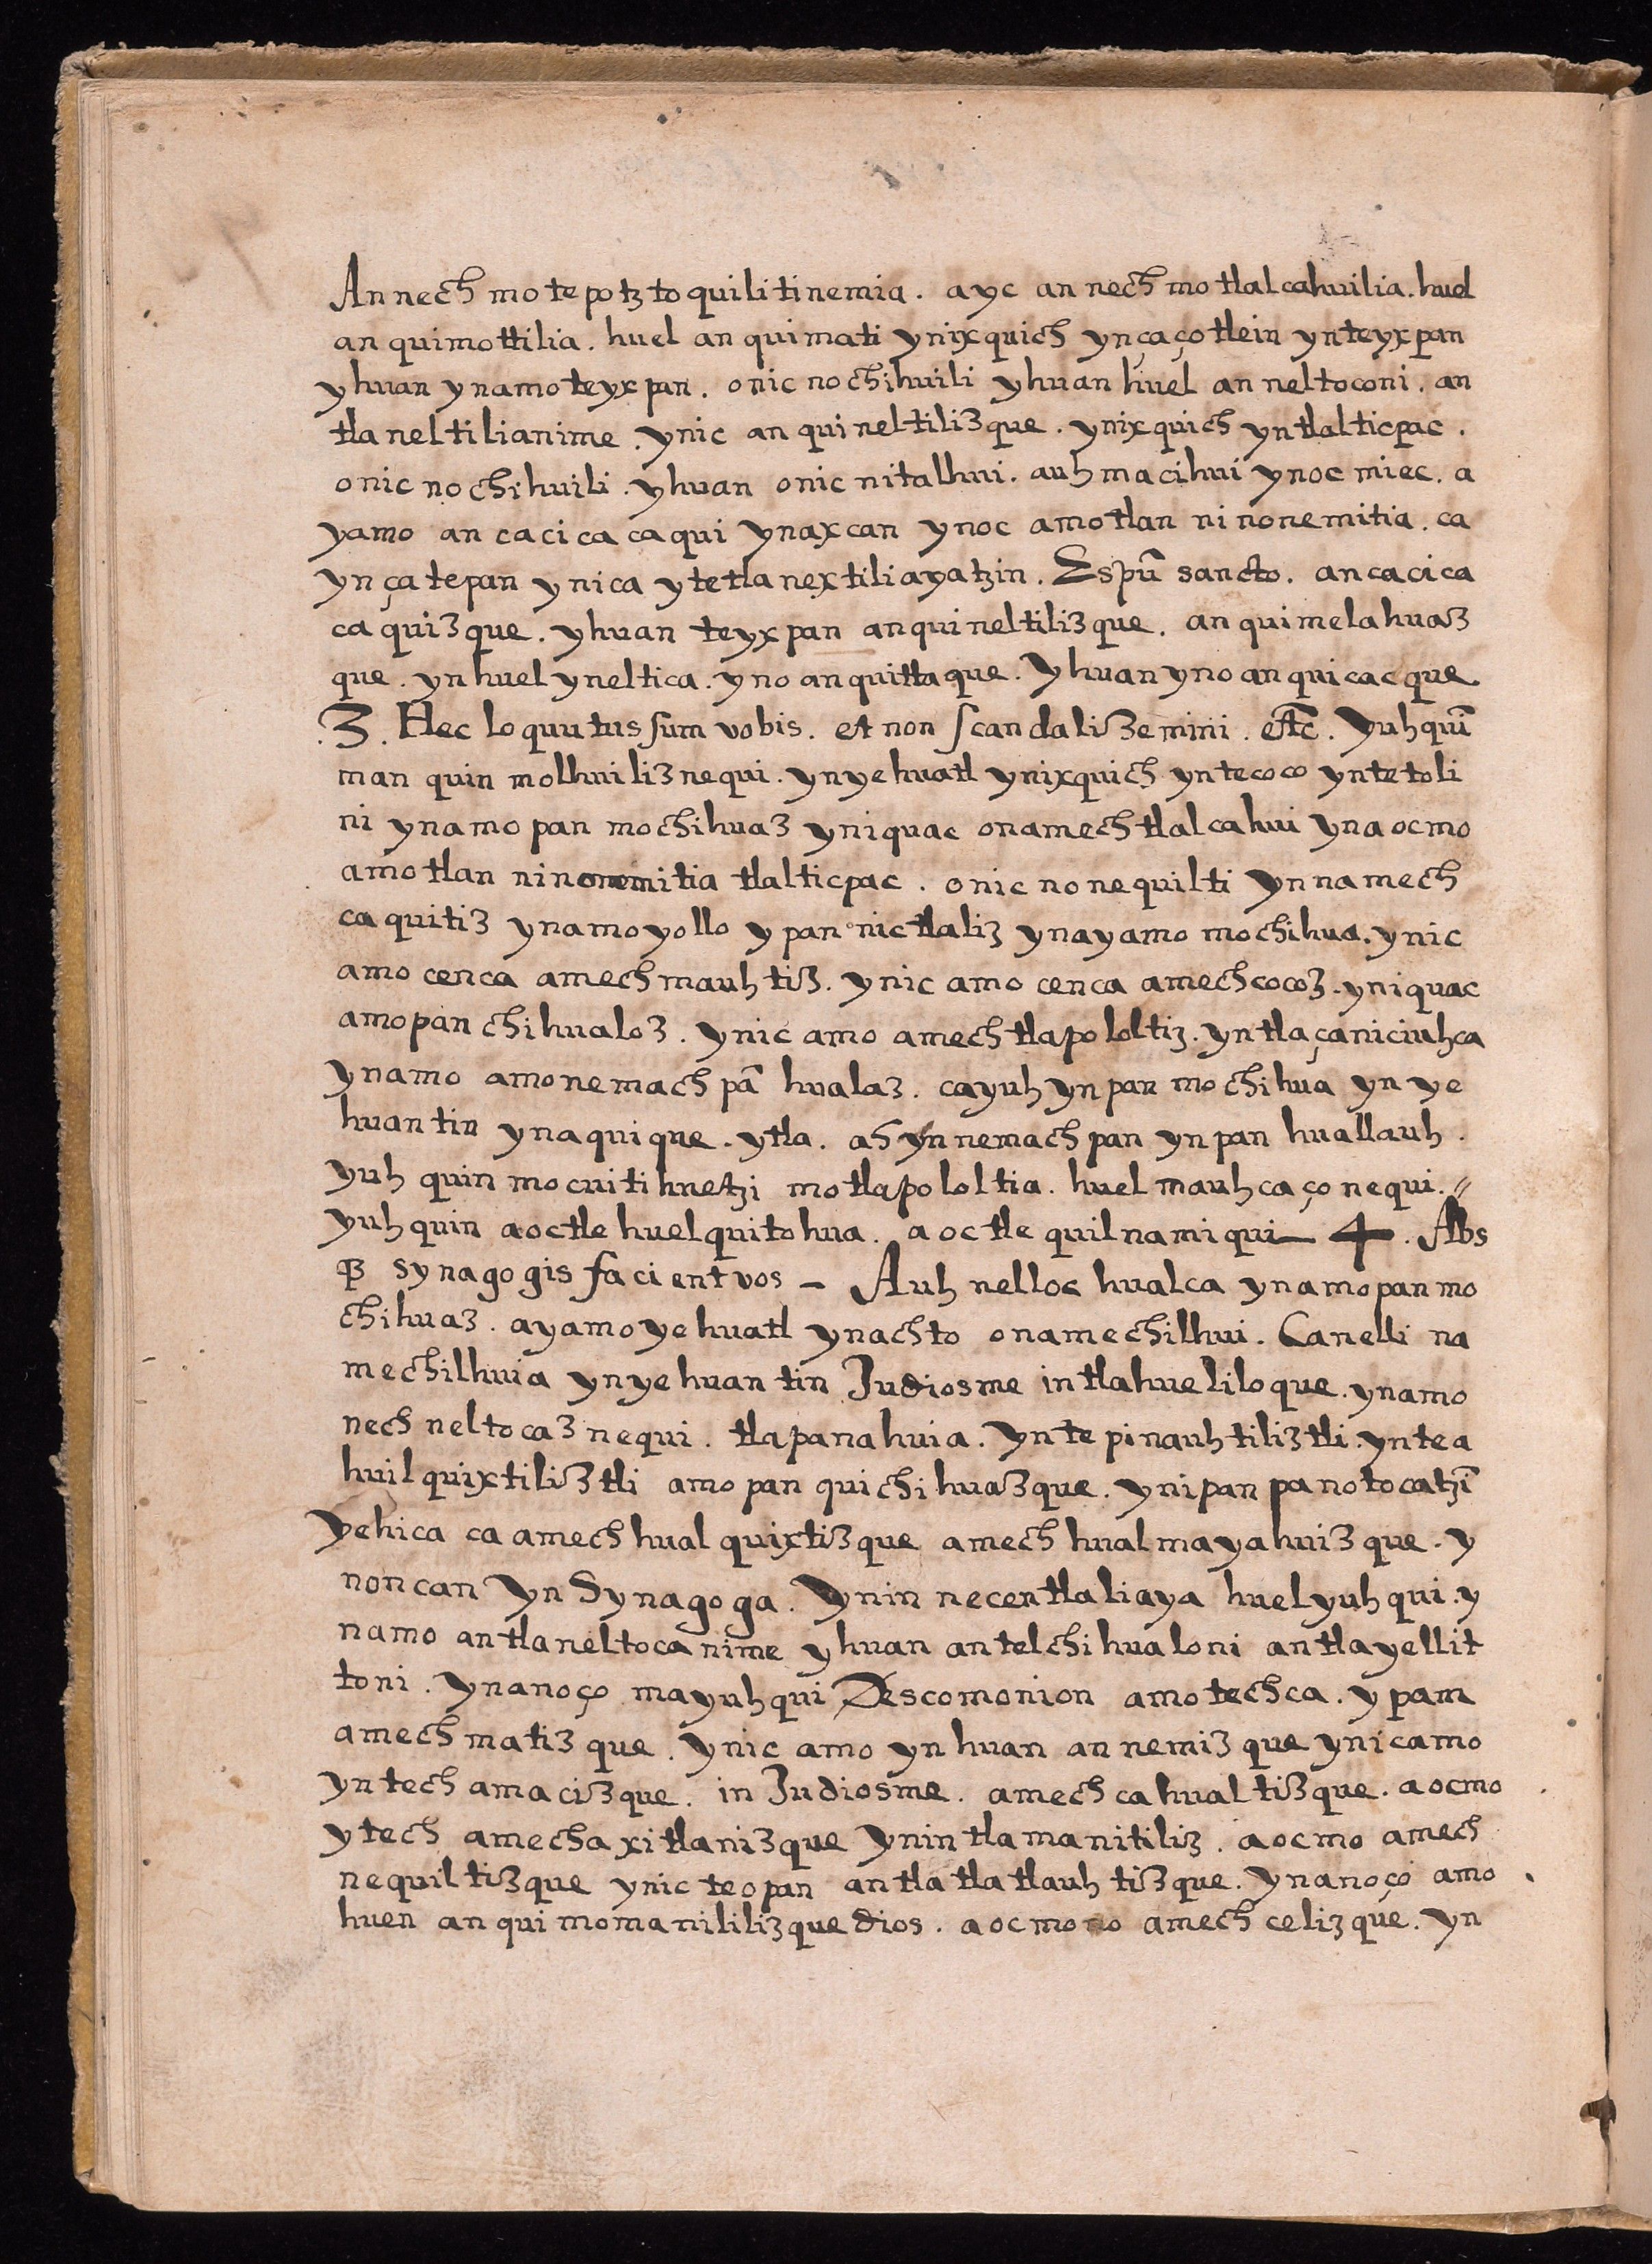 An nech mo te potz to quilitinemia. ayc an nech mo tlal cahuilia. huel
an quimottilia. huel an qui mati ynixquich ynçaçotlein ynteyxpan
yhuan ynamoteyxpan. onic nochihuili yhuan huel an neltoconi. an
tla neltilianime. ynic an qui neltiliz que. ynixquich yntlalticpac.
onic no chihuili. yhuan onic nitalhui. auh macihui ynoc miec. a
yamo an caci ca caqui ynaxcan ynoc amotlan ni nonemitia. ca
yn çatepan ynica ytetla nextiliayatzin. Espũ sancto. an caci ca
ca quiz que. yhuan teyxpan anqui neltiliz que. an qui melahuaz
que. yn huel yneltica. yno an quittaque. Yhuan yno an qui cac que
.3. Hec lo quutus sum vobis. et non scandalizemini. etc̃. Yuh quĩ
man quin molhuiliz nequi. ynyehuatl ynixquich yntecoco yntetoli
ni ynamo pan mochihuaz yniquac onamech tlalcahui yna ocmo
amotlan ninonemitia tlalticpac. onic no nequilti ynnamech
ca quitiz ynamoyollo ypan nictlaliz ynayamo mochihua. ynic
amo cenca amech mauhtiz. ynic amo cenca amechcocoz. yniquac
amopan chihualoz. ynic amo amech tlapololtiz. yntlaçaniciuhca
ynamo amonemach pã hualaz. cayuh yn pan mochihua yn ye
huantin ynaquique. ytla. ah yn nemach pan yn pan huallauh.
yuh quin mocuiti huetzi motlapololtia. huel mauhcaçonequi.//
yuhquin aoctle huel quitohua. a oc tle quilnamiqui— 4. Abs
qꝫ synagogis facient vos — Auh nelloc hualca ynamopan mo
chihuaz. ayamoyehuatl ynachto onamechilhui. Canelli na
mechilhuia ynyehuantin Judiosme intlahueliloque. ynamo
nech neltocaz nequi. tlapanahuia. ynte pinauhtiliztli. yntea
huilquixtiliztli amo pan quichihuazque. ynipan panotocatzĩ
yehica ca amech hual quixtizque amech hualmayahuiz que. y
noncan yn Synagoga. ynin necentlaliaya huelyuhqui. y
namo antlaneltocanime yhuan antelchihualoni antlayellit
toni. ynanoço mayuhqui Descomonion amotechca. ypam
amech matiz que. ynic amo ynhuan an nemiz que ynicamo
yntech amacizque. in Judiosme. amech cahualtizque. aocmo
ytech amechaxitlanizque ynintlamanitiliz. aocmo amech
nequiltizque ynic teopan antlatlatlauhtizque. ynanoço amo
huen anquimomanililizque dios. aocmo no amech celizque. yn